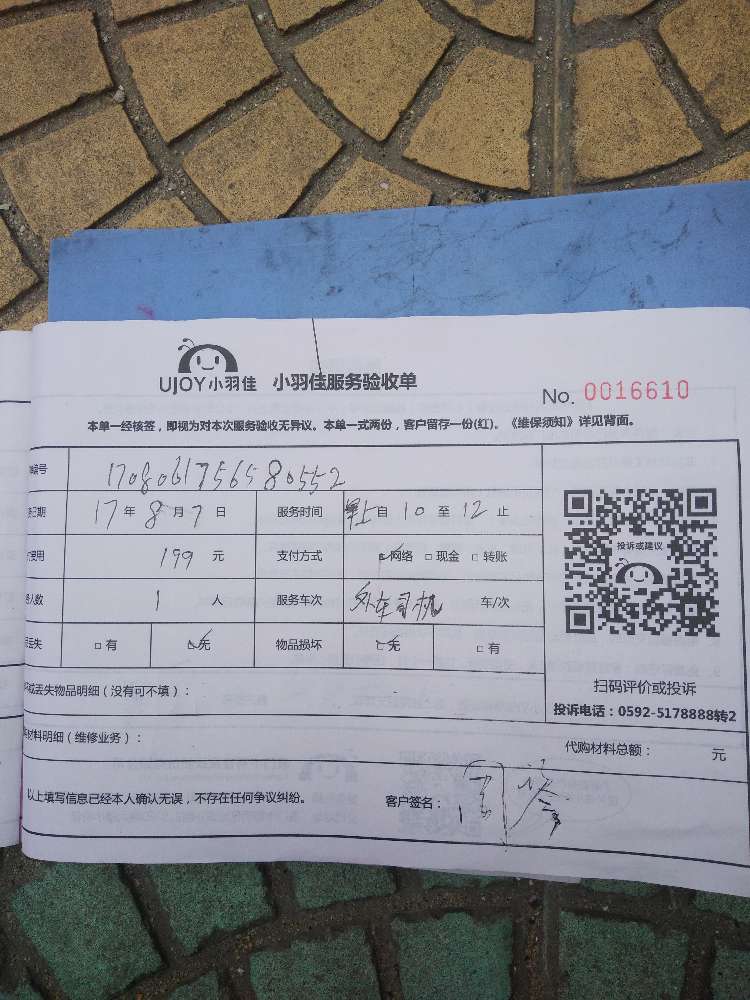 UJOY小羽佳 小羽佳服务验收单
No. 0016610
本单一经核签，即视为对本次服务验收无异议。本单一式两份，客户留存一份(红)。《维保须知》详见背面。
编号 170806175658 0552
日期 17年8月7日 服务时间 早上自10至12止
费用 199元 支付方式 ☑网络 □现金 □转账
人数 1人 服务车次 外车司机 车/次
丢失 □有 ☑无 物品损坏 ☑无 □有
投诉或建议
扫码评价或投诉
投诉电话：0592-5178888转2
或丢失物品明细（没有可不填）：
材料明细（维修业务）： 代购材料总额： 元
以上填写信息已经本人确认无误，不存在任何争议纠纷。 客户签名：